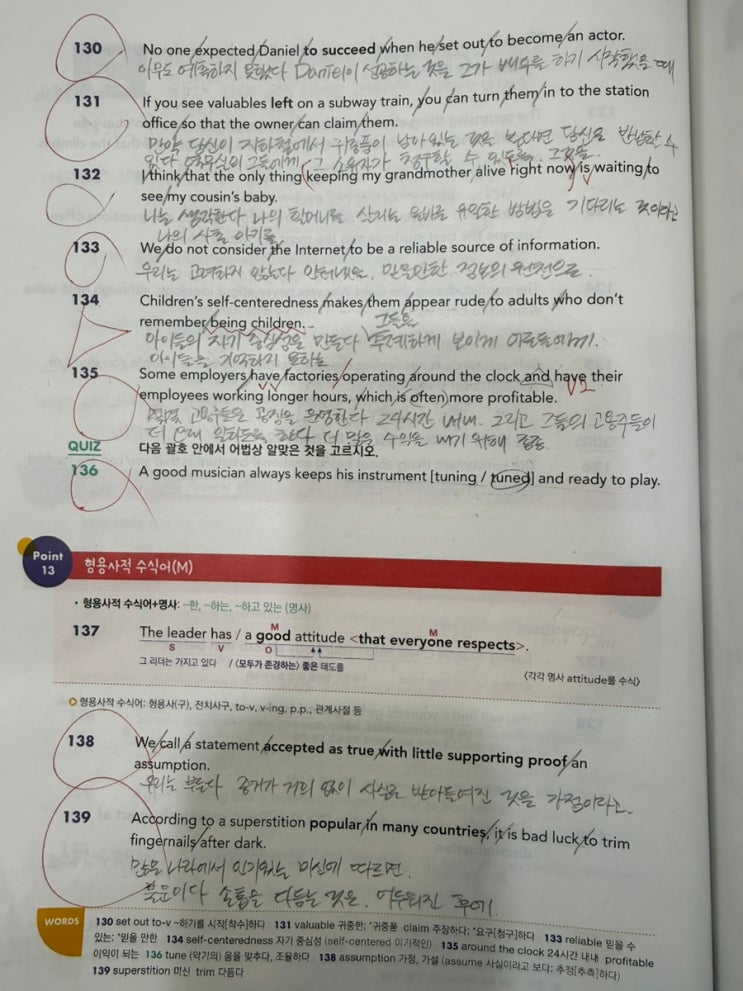 130 No one expected Daniel to succeed when he set out to become an actor.
아무도 예측하지 못했다 Daniel이 성공하는 것을 그가 배우를 하기 시작했을 때
131 If you see valuables left on a subway train, you can turn them in to the station
office so that the owner can claim them.
만약 당신이 지하철에서 귀중품이 남아있는 것을 본다면 당신은 반납할 수
있다 역무실의 그들에게 그 소유자가 청구할 수 있도록. 그것을.
132 I think that the only thing keeping my grandmother alive right now is waiting to
see my cousin's baby.
나는 생각한다 나의 할머니를 살리는 유일한 방법은 기다리는 것이라고
나의 사촌 아기를
133 We do not consider the Internet to be a reliable source of information.
우리는 고려하지 않는다 인터넷은. 믿을만한 정보의 원천으로.
134 Children's self-centeredness makes them appear rude to adults who don't
그들을
remember being children.
아이들의 자기 중심성은 만들다 무례하게 보이게 어른들에게.
아이들을 기억하지 못하는
135 Some employers have factories operating around the clock and have their
employees working longer hours, which is often more profitable.
고용주들은 공장을 운영한다 24시간 내내. 그리고 그들의 고용주들이
더 오래 한다 더 많은 수익을 내기 위해 종종.
QUIZ 다음 괄호 안에서 어법상 알맞은 것을 고르시오.
136 A good musician always keeps his instrument [tuning / tuned] and ready to play.
Point
13 형용사적 수식어(M)
• 형용사적 수식어+명사: ~한, ~하는, ~하고 있는 (명사)
M M
137 The leader has / a good attitude <that everyone respects>.
S V O
그 리더는 가지고 있다 / <모두가 존경하는> 좋은 태도를 <각각 명사 attitude를 수식>
형용사적 수식어: 형용사(구), 전치사구, to-v, v-ing, p.p., 관계사절 등
138 We call a statement accepted as true with little supporting proof an
assumption.
우리는 부른다 증거가 거의 없이 사실로 받아들여진 것을 가정이라고.
139 According to a superstition popular in many countries, it is bad luck to trim
fingernails after dark.
많은 나라에서 인기있는 미신에 따르면.
불운이다 손톱을 다듬는 것은. 어두워진 후에.
WORDS 130 set out to-v ~하기를 시작[착수]하다 131 valuable 귀중한; *귀중품 claim 주장하다; *요구[청구]하다 133 reliable 믿을 수
있는; *믿을 만한 134 self-centeredness 자기 중심성 (self-centered 이기적인) 135 around the clock 24시간 내내 profitable
이익이 되는 136 tune (악기의) 음을 맞추다, 조율하다 138 assumption 가정, 가설 (assume 사실이라고 보다; 추정[추측]하다)
139 superstition 미신 trim 다듬다